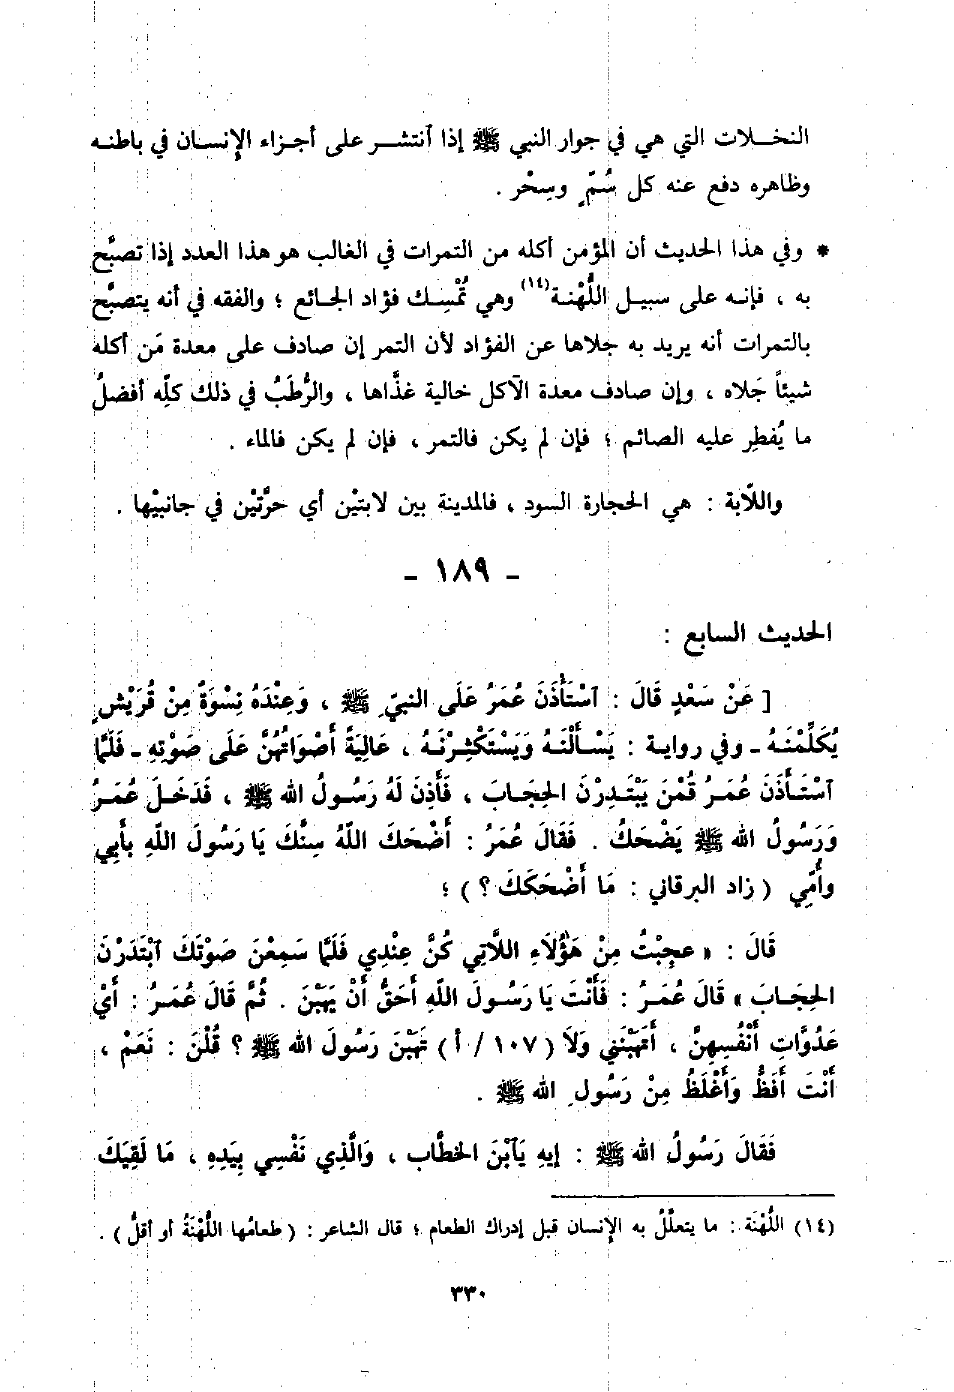 النخـلات التي هي في جوار النبي ﷺ إذا آنتشـر على أجـزاء الإنسـان في باطنـه
وظاهره دفع عنه كل سُمّ وسِحْر .
* وفي هذا الحديث أن المؤمن أكله من التمرات في الغالب هو هذا العدد إذا تصبَّح
به ، فإنـه على سبيـل اللُّهْنـة(١٤) وهي تُمْسِـك فؤاد الجـائع ؛ والفقه في أنه يتصبَّح
بالتمرات أنه يريد به جلاها عن الفؤاد لأن التمر إن صادف على معدة مَن أكله
شيئاً جَلاه ، وإن صادف معدة الآكل خالية غذَّاها ، والرُّطَبُ في ذلك كلِّه أفضلُ
ما يُفطِر عليه الصائم ؛ فإن لم يكن فالتمر ، فإن لم يكن فالماء .
واللّابة : هي الحجارة السود ، فالمدينة بين لابتيْن أي حرَّتيْن في جانبيْها .
- ١٨٩ -
الحديث السابع :
[ عَنْ سَعْدٍ قَالَ : آسْتَأْذَنَ عُمَرُ عَلَى النبيّ ﷺ ، وَعِنْدَهُ نِسْوَةٌ مِنْ قُرَيْشٍ
يُكَلِّمْنَـهُ ـ وفي روايـة : يَسْـأَلْنَـهُ وَيَسْتَكْثِـرْنَـهُ ، عَالِيَةً أَصْوَاتُهُنَّ عَلَى صَوْتِهِ ـ فَلَمَّا
آسْتَـأْذَنَ عُمَـرُ قُمْنَ يَبْتَـدِرْنَ الحِجَـابَ ، فَأَذِنَ لَهُ رَسُـولُ الله ﷺ ، فَدَخَـلَ عُمَـرُ
وَرَسُولُ الله ﷺ يَضْحَكُ . فَقَالَ عُمَرُ : أَضْحَكَ اللهُ سِنَّكَ يَا رَسُولَ اللهِ بِأَبِي
وأُمِّي ( زاد البرقاني : مَا أَضْحَكَكَ ؟ ) ؛
قَالَ : « عجِبْتُ مِنْ هَؤُلَاءِ اللَّاتِي كُنَّ عِنْدِي فَلَمَّا سَمِعْنَ صَوْتَكَ آبْتَدَرْنَ
الحِجَـابَ » قَالَ عُمَـرُ : فَأَنْتَ يَا رَسُـولَ اللهِ أَحَقُّ أَنْ يَهَبْنَ . ثُمَّ قَالَ عُمَـرُ : أَيْ
عَدُوَّاتِ أَنْفُسِهِنَّ ، أَتَهَبْنَنِي وَلَا ( ١٠٧ / أ ) تَهَبْنَ رَسُولَ الله ﷺ ؟ قُلْنَ : نَعَمْ ،
أَنْتَ أَفَظُّ وَأَغْلَظُ مِنْ رَسُولِ الله ﷺ .
فَقَالَ رَسُولُ الله ﷺ : إيهِ يَآبْنَ الخطَّاب ، وَالَّذِي نَفْسِي بِيَدِهِ ، مَا لَقِيَكَ
(١٤) اللُّهْنَة : ما يتعلَّلُ به الإنسان قبل إدراك الطعام ؛ قال الشاعر : ( طعامُها اللُّهْنَةُ أو أقلُّ ) .
٣٣٠